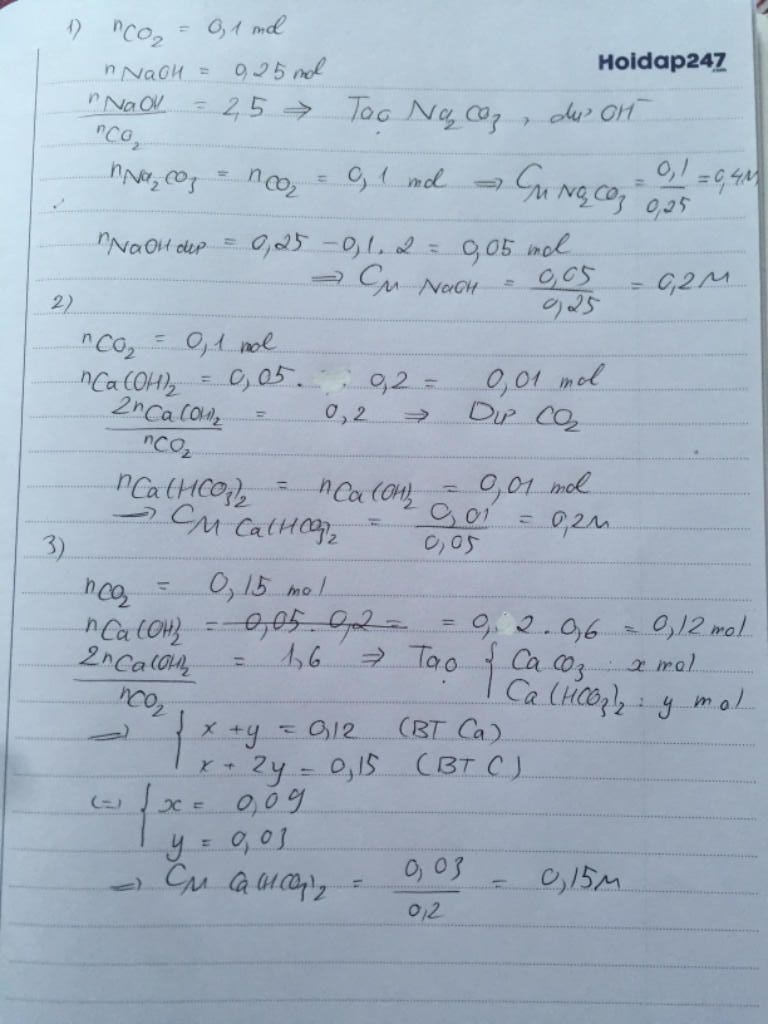 1) nCO₂ = 0,1 mol
Hoidap247
nNaOH = 0,25 mol
nNaOH / nCO₂ = 2,5 ⇒ Tạo Na₂CO₃, dư OH⁻
nNa₂CO₃ = nCO₂ = 0,1 mol ⇒ CM Na₂CO₃ = 0,1 / 0,25 = 0,4M
nNaOH dư = 0,25 - 0,1 . 2 = 0,05 mol
⇒ CM NaOH = 0,05 / 0,25 = 0,2M
2)
nCO₂ = 0,1 mol
nCa(OH)₂ = 0,05 . 0,2 = 0,01 mol
2nCa(OH)₂ / nCO₂ = 0,2 ⇒ Dư CO₂
nCa(HCO₃)₂ = nCa(OH)₂ = 0,01 mol
⇒ CM Ca(HCO₃)₂ = 0,01 / 0,05 = 0,2M
3)
nCO₂ = 0,15 mol
nCa(OH)₂ = 0,05 . 0,2 = = 0,2 . 0,6 = 0,12 mol
2nCa(OH)₂ / nCO₂ = 1,6 ⇒ Tạo { CaCO₃ : x mol
Ca(HCO₃)₂ : y mol
⇒ { x + y = 0,12 (BT Ca)
x + 2y = 0,15 (BT C)
(=) { x = 0,09
y = 0,03
⇒ CM Ca(HCO₃)₂ = 0,03 / 0,2 = 0,15M